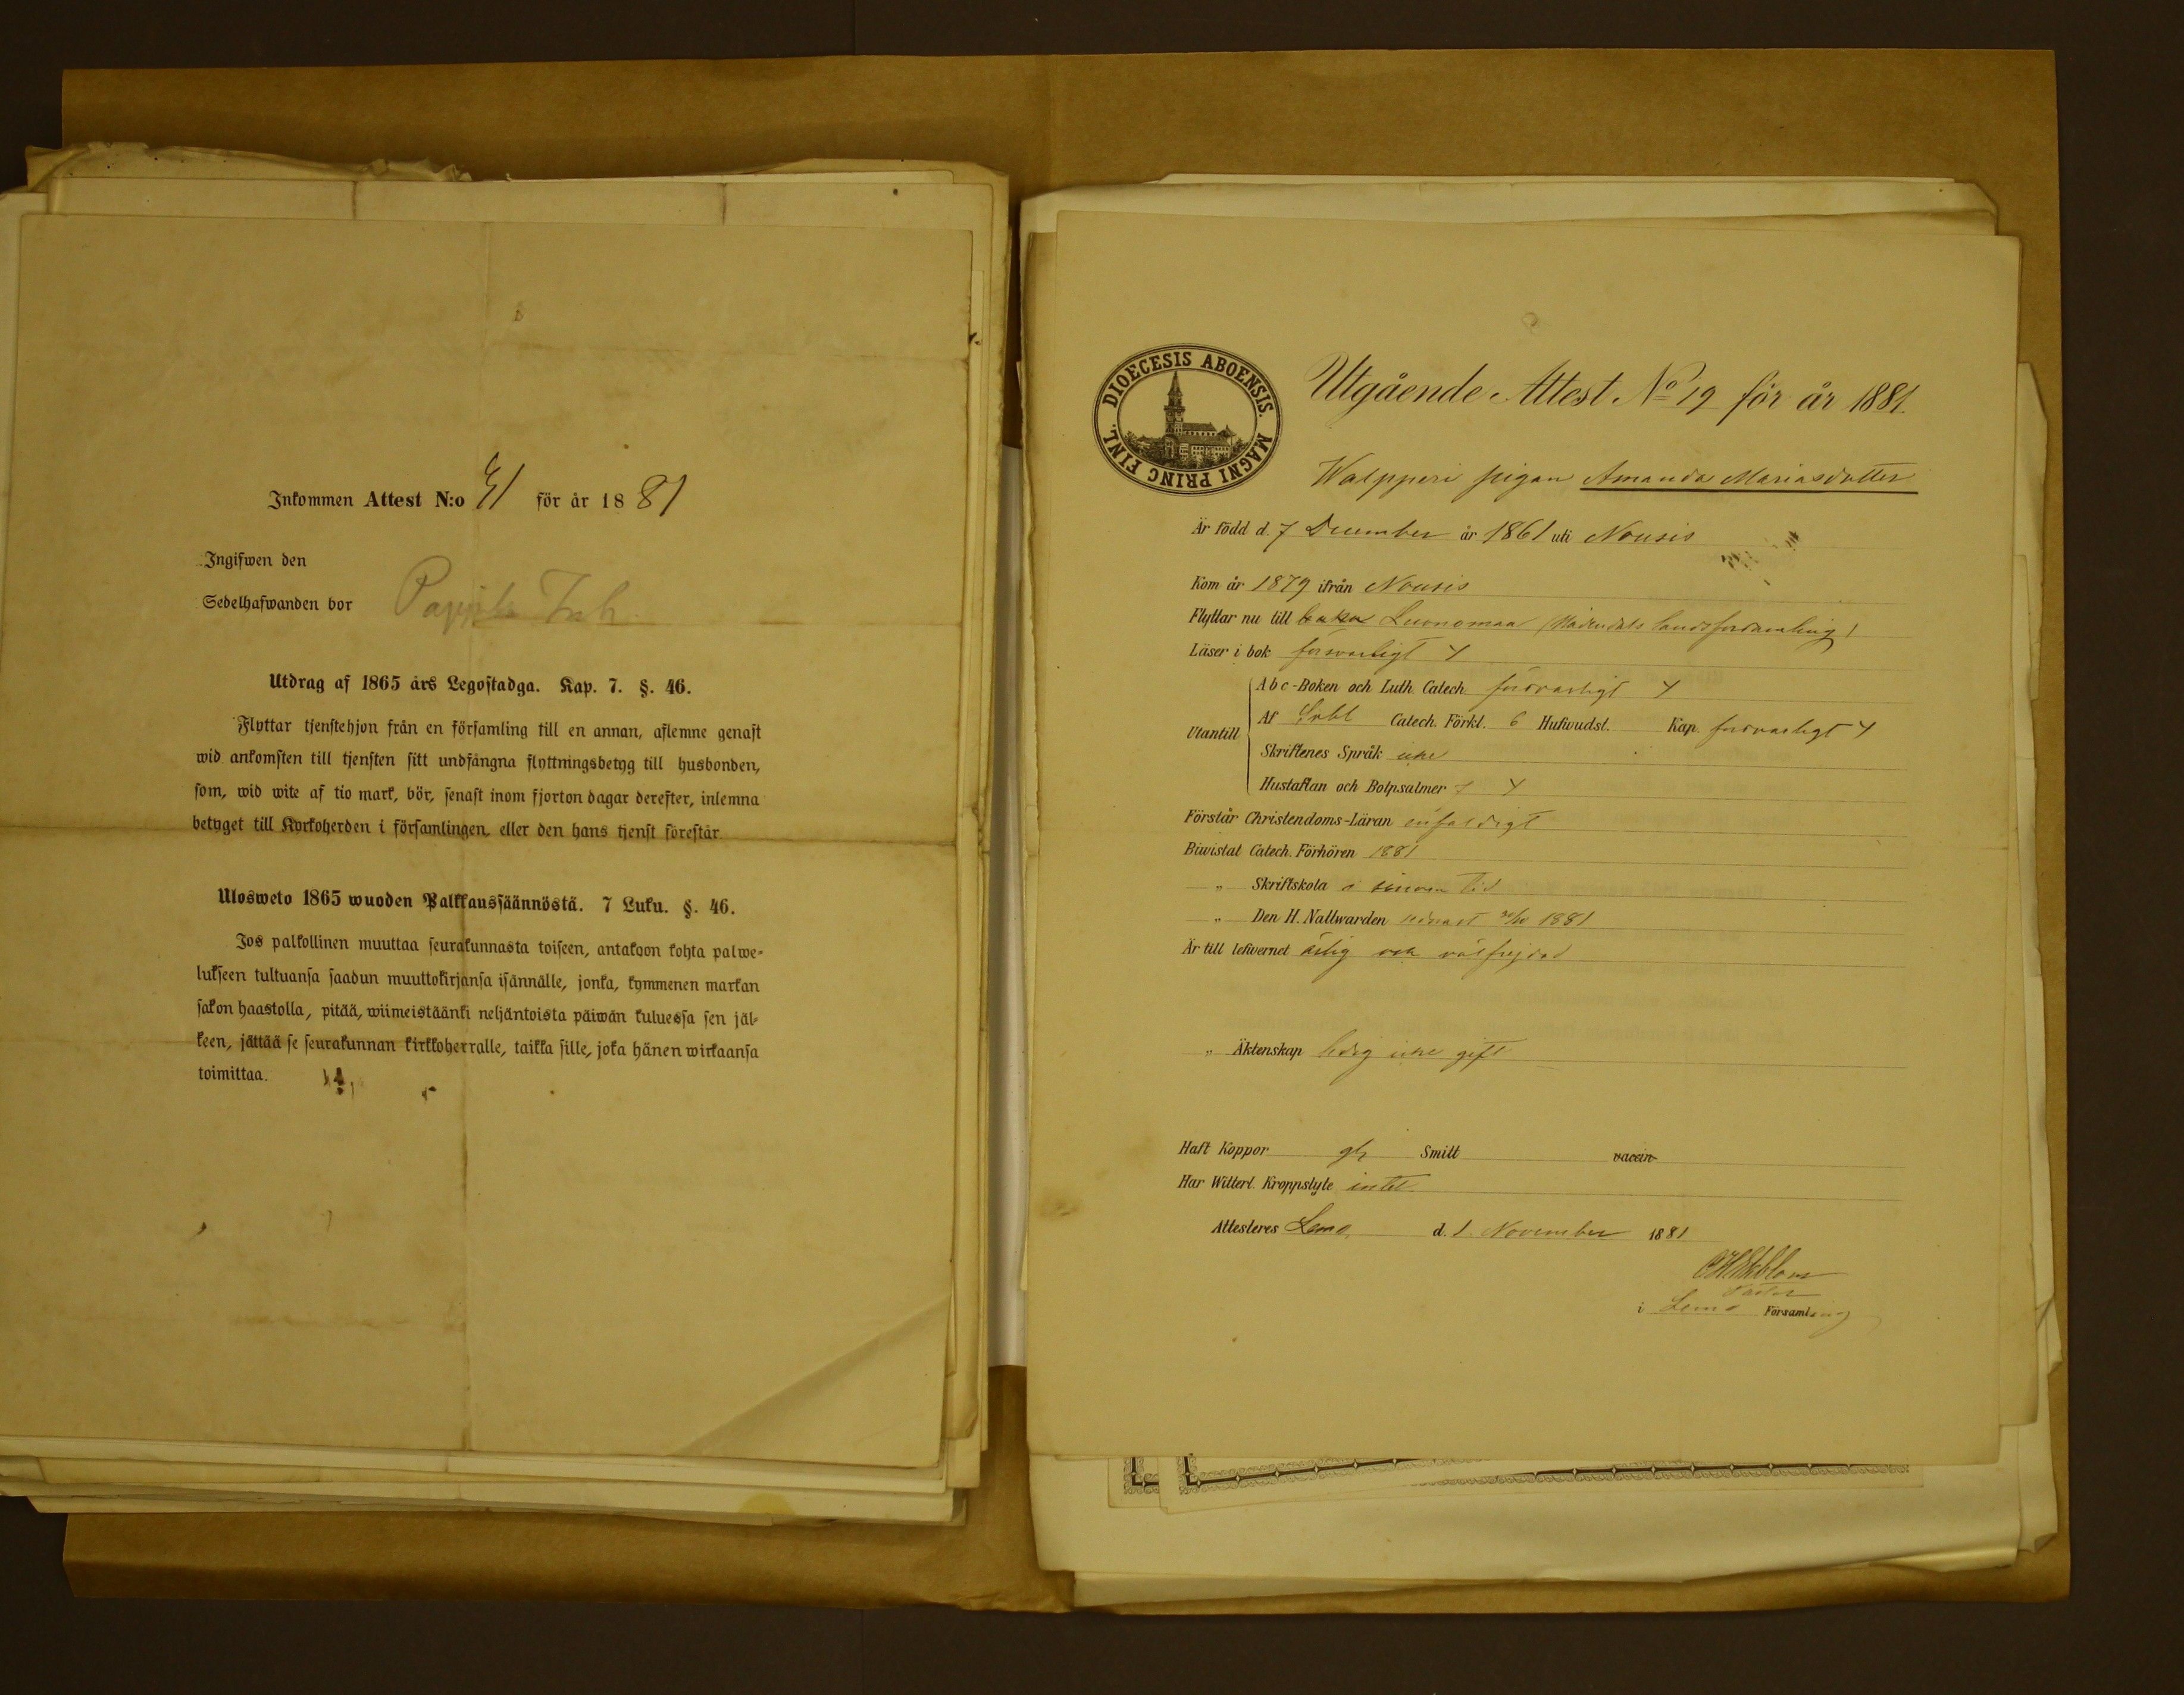 Inkommen Attest N:o 41 för år 1881
Ingifwen den
Sedelhafwanden bor
Utdrag af 1865 års Legostadga. Kap. 7. §. 46.
Flyttar tjenstehjon från en församling till en annan, aflemne genast
wid ankomsten till tjensten sitt undfångna flyttningsbetyg till husbonden,
som, wid wite af tio mark, bör, senast inom fjorton dagar derefter, inlemna
betyget till Kyrkoherden i församlingen, eller den hans tjenst förestår.
Ulosweto 1865 wuoden Palkkaussäännöstä. 7 Luku. §. 46.
Jos palkollinen muuttaa seurakunnasta toiseen, antakoon kohta palwe-
lukseen tultuansa saadun muuttokirjansa isännälle, jonka, kymmenen markan
sakon haastolla, pitää, wiimeistäänki neljäntoista päiwän kuluessa sen jäl-
keen, jättää se seurakunnan kirkkoherralle, taikka sille, joka hänen wirkaansa
toimittaa.
DIOECESIS ABOENSIS. MAGNI PRINC FINL.
Utgående Attest No 19 för år 1881.
Walpperi pigan Amanda Mariasdotter
Är född d. 7 December år 1861 uti Nousis
Kom år 1879 ifrån Nousis
Flyttar nu till Luonomaa (Nådendals landsförsamling)
Läser i bok försvarligt
Utantill
Abc-Boken och Luth. Catech. försvarligt
Af Catech. Förkl. 6 Hufwudst. Kap. försvarligt
Skriftenes Språk icke
Hustaflan och Botpsalmer
Förstår Christendoms-Läran enfaldigt
Biwistat Catech. Förhören 1881
" Skriftskola i sinom tid
" Den H. Nattwarden senast 1881
Är till lefwernet ärlig och välfrejdad
" Äktenskap ledig icke gift
Haft Koppor Smitt vaccin
Har Witterl. Kroppslyte intet
Attesteres Lemo d. 1 November 1881
Ekblom
Pastor
i Lemo Församling